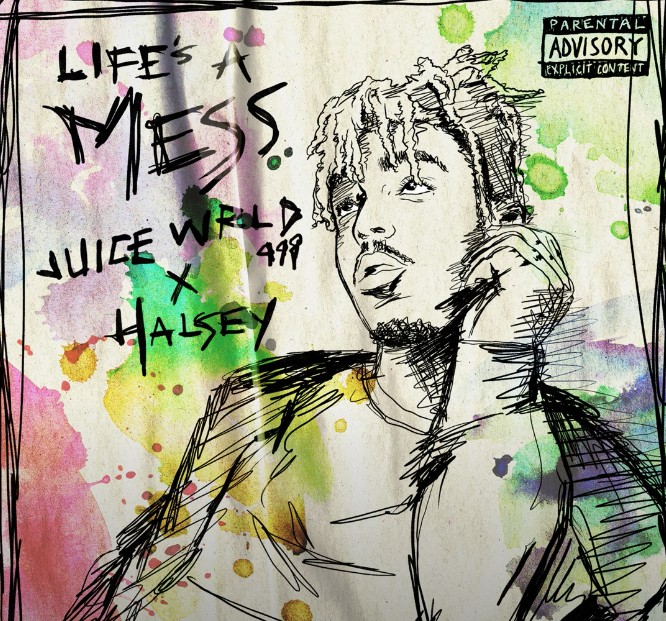 LIFE'S A
MESS
JUICE WRLD
999
X
HALSEY
PARENTAL
ADVISORY
EXPLICIT CONTENT